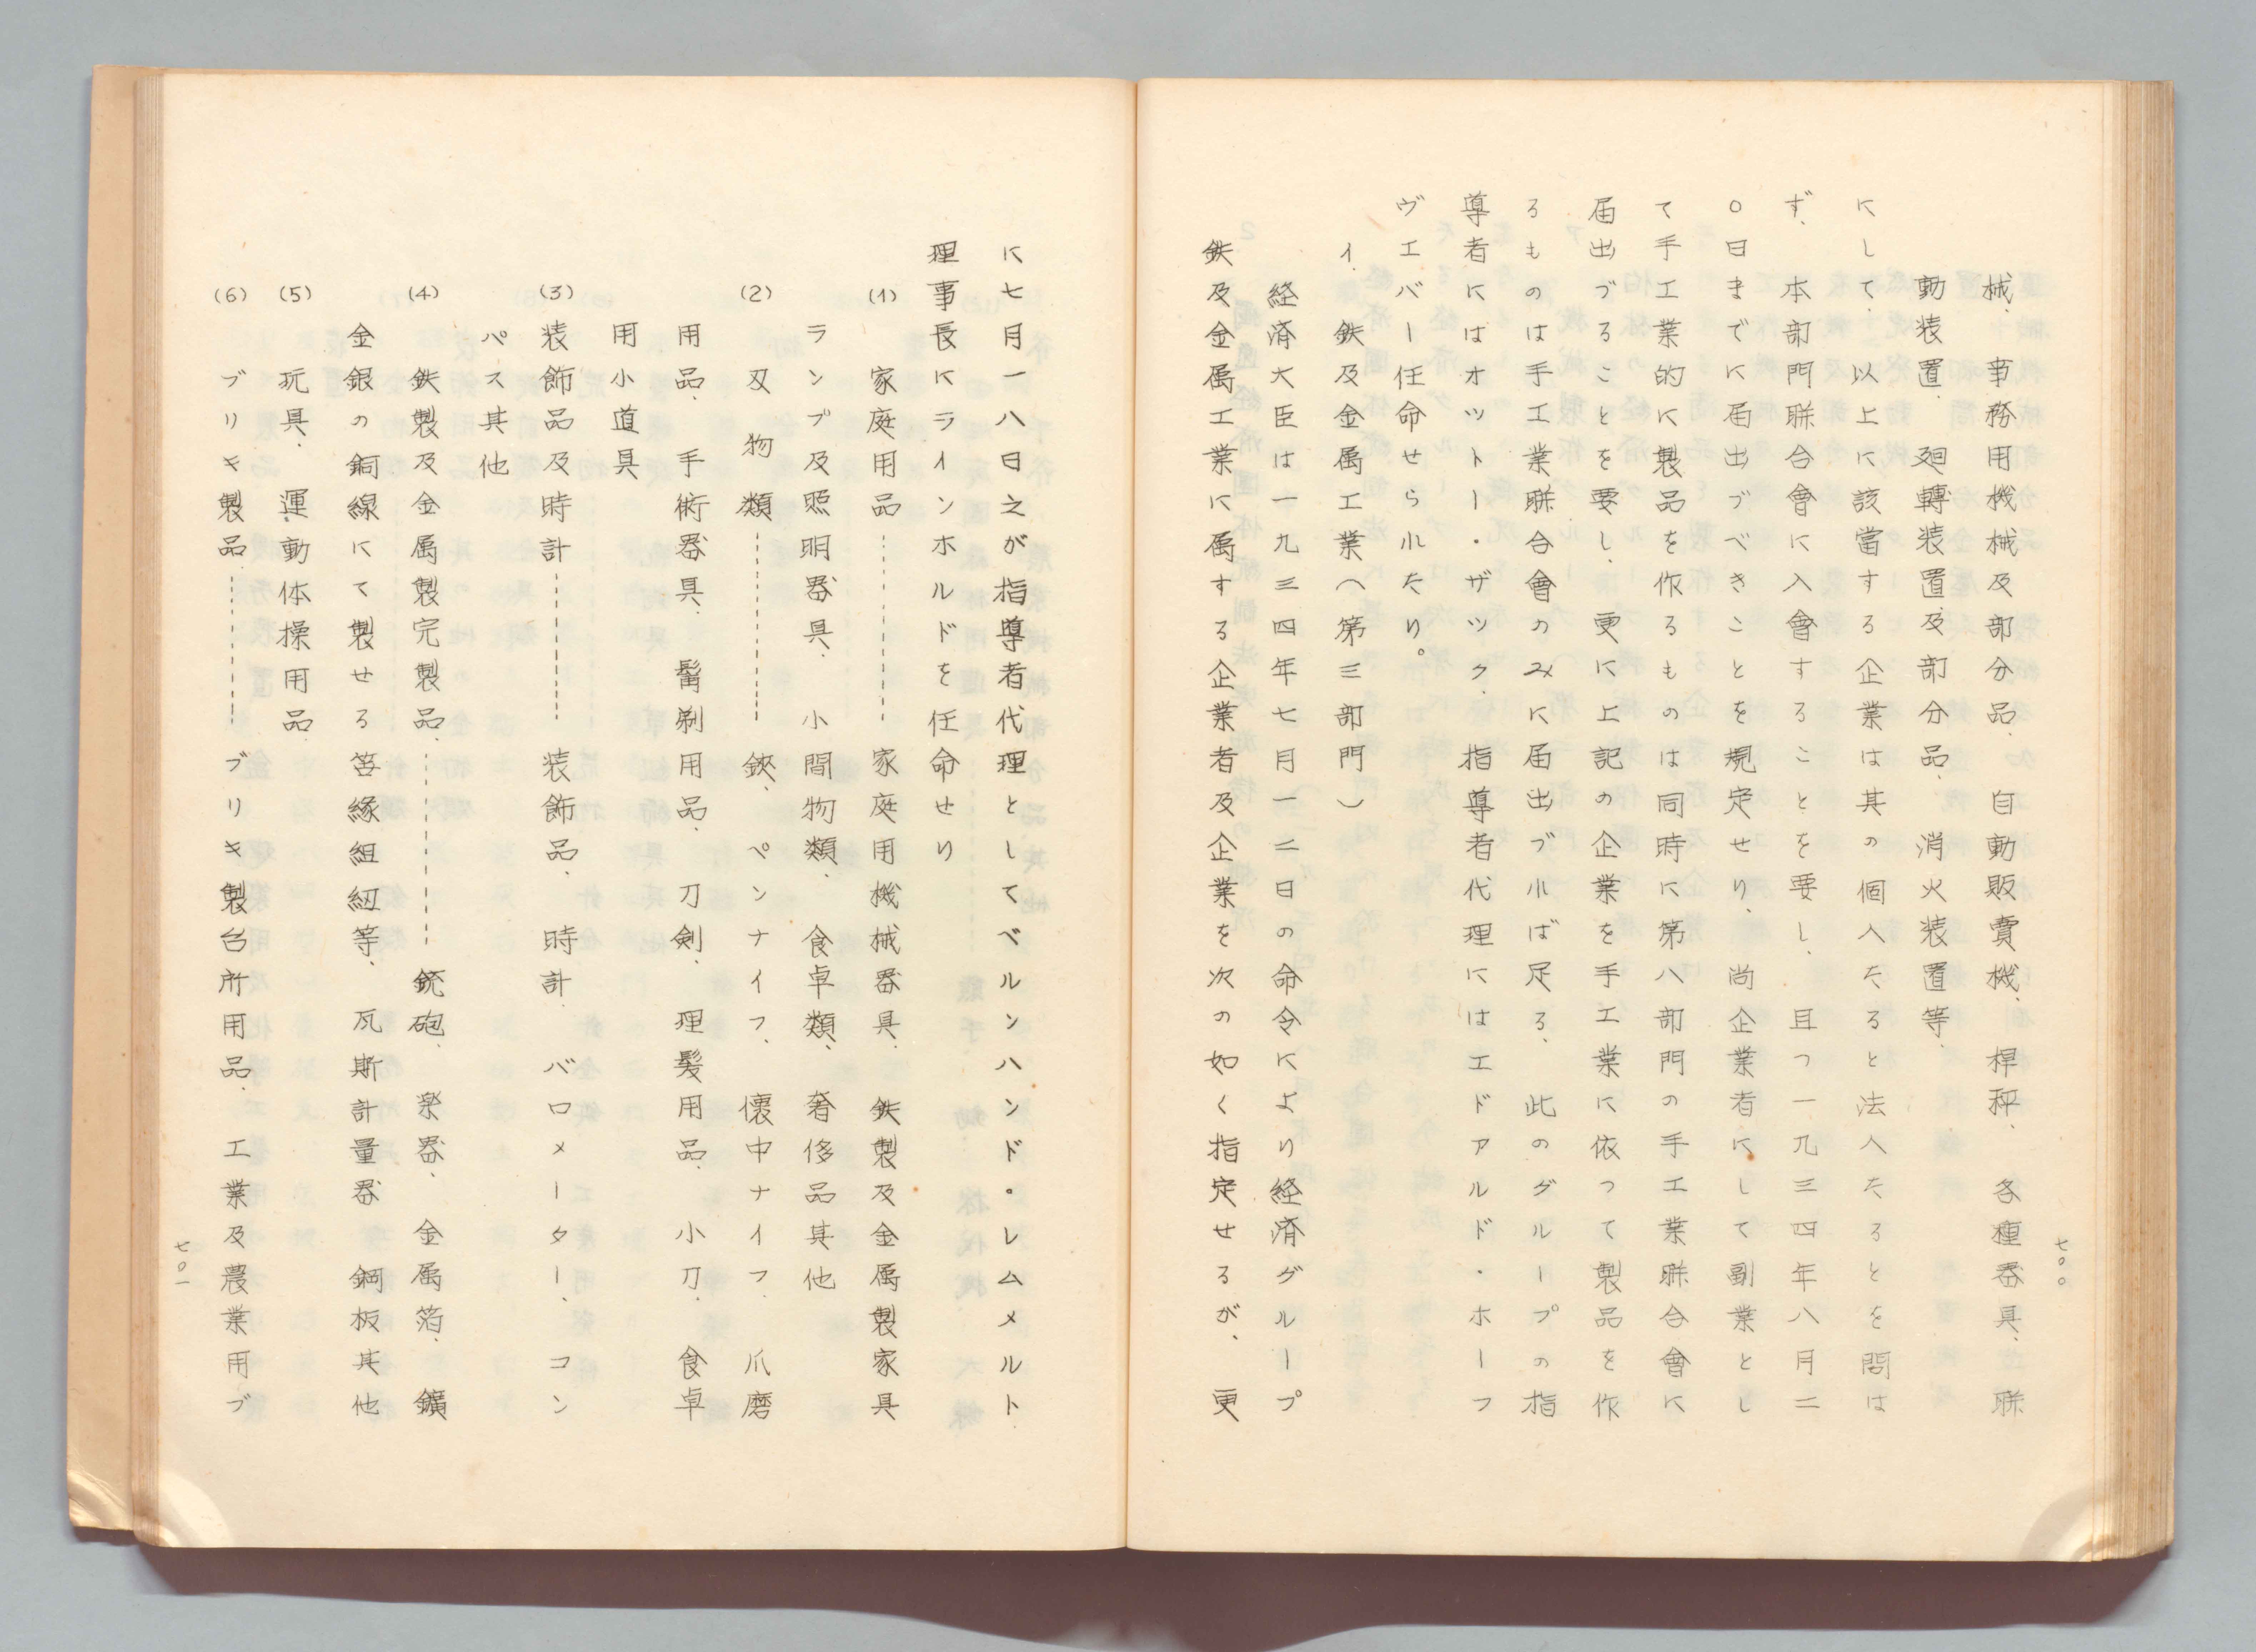 械、事務用機械及部分品、自動販賣機、桿秤、各種器具、聯
動装置、廻轉装置及部分品、消火装置等、
にして、以上に該當する企業は其の個人たると法人たるとを問は
ず、本部門聯合會に入會することを要し、且つ一九三四年八月二
〇日までに届出づべきことを規定せり、尚企業者にして副業とし
て手工業的に製品を作るものは同時に第八部門の手工業聯合會に
届出づることを要し、更に上記の企業を手工業に依つて製品を作
るものは手工業聯合會のみに届出づれば足る、此のグループの指
導者にはオツトー・ザツク、指導者代理にはエドアルド・ホーフ
ヴエバー任命せられたり。
イ、鉄及金属工業(第三部門)
経済大臣は一九三四年七月一二日の命令により経済グループ
鉄及金属工業に属する企業者及企業を次の如く指定せるが、更
七〇〇
に七月一八日之が指導者代理としてベルンハンド・レムメルト
理事長にラインホルドを任命せり
(1) 家庭用品………家庭用機械器具、鉄製及金属製家具
ランプ及照明器具、小間物類、食卓類、奢侈品其他
(2) 刃物類………鋏、ペンナイフ、懐中ナイフ、爪磨
用品、手術器具、髯剃用品、刀剣、理髪用品、小刀、食卓
用小道具
(3) 装飾品及時計………装飾品、時計、バロメーター、コン
パス其他
(4) 鉄製及金属製完製品………銃砲、楽器、金属箔、鑛
金銀の銅線にて製せる笞縁組紐等、瓦斯計量器 鋼板其他
(5) 玩具、運動体操用品
(6) ブリキ製品………ブリキ製台所用品、工業及農業用ブ
七〇一